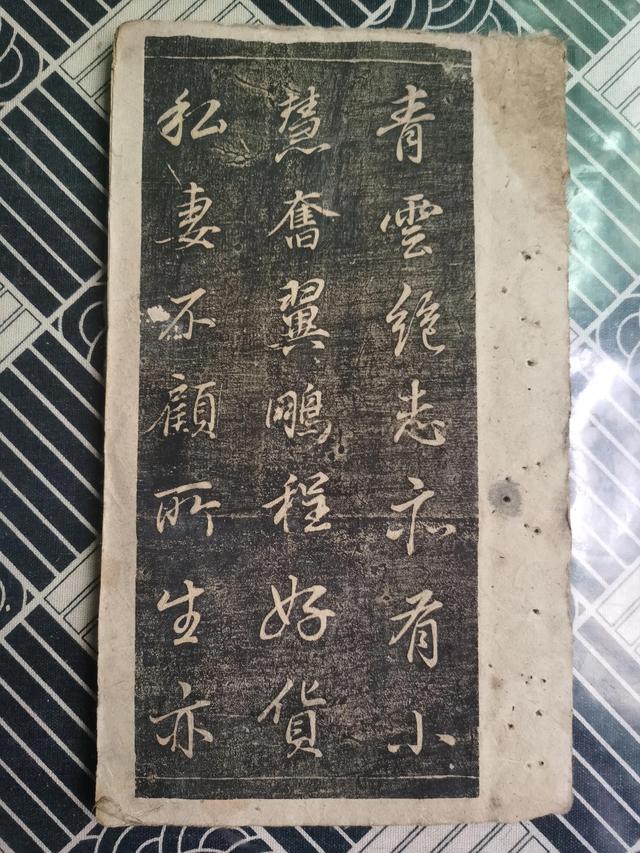 青雲絶志亦有小
慧奮翼鵬程好貨
私妻不顧所生亦